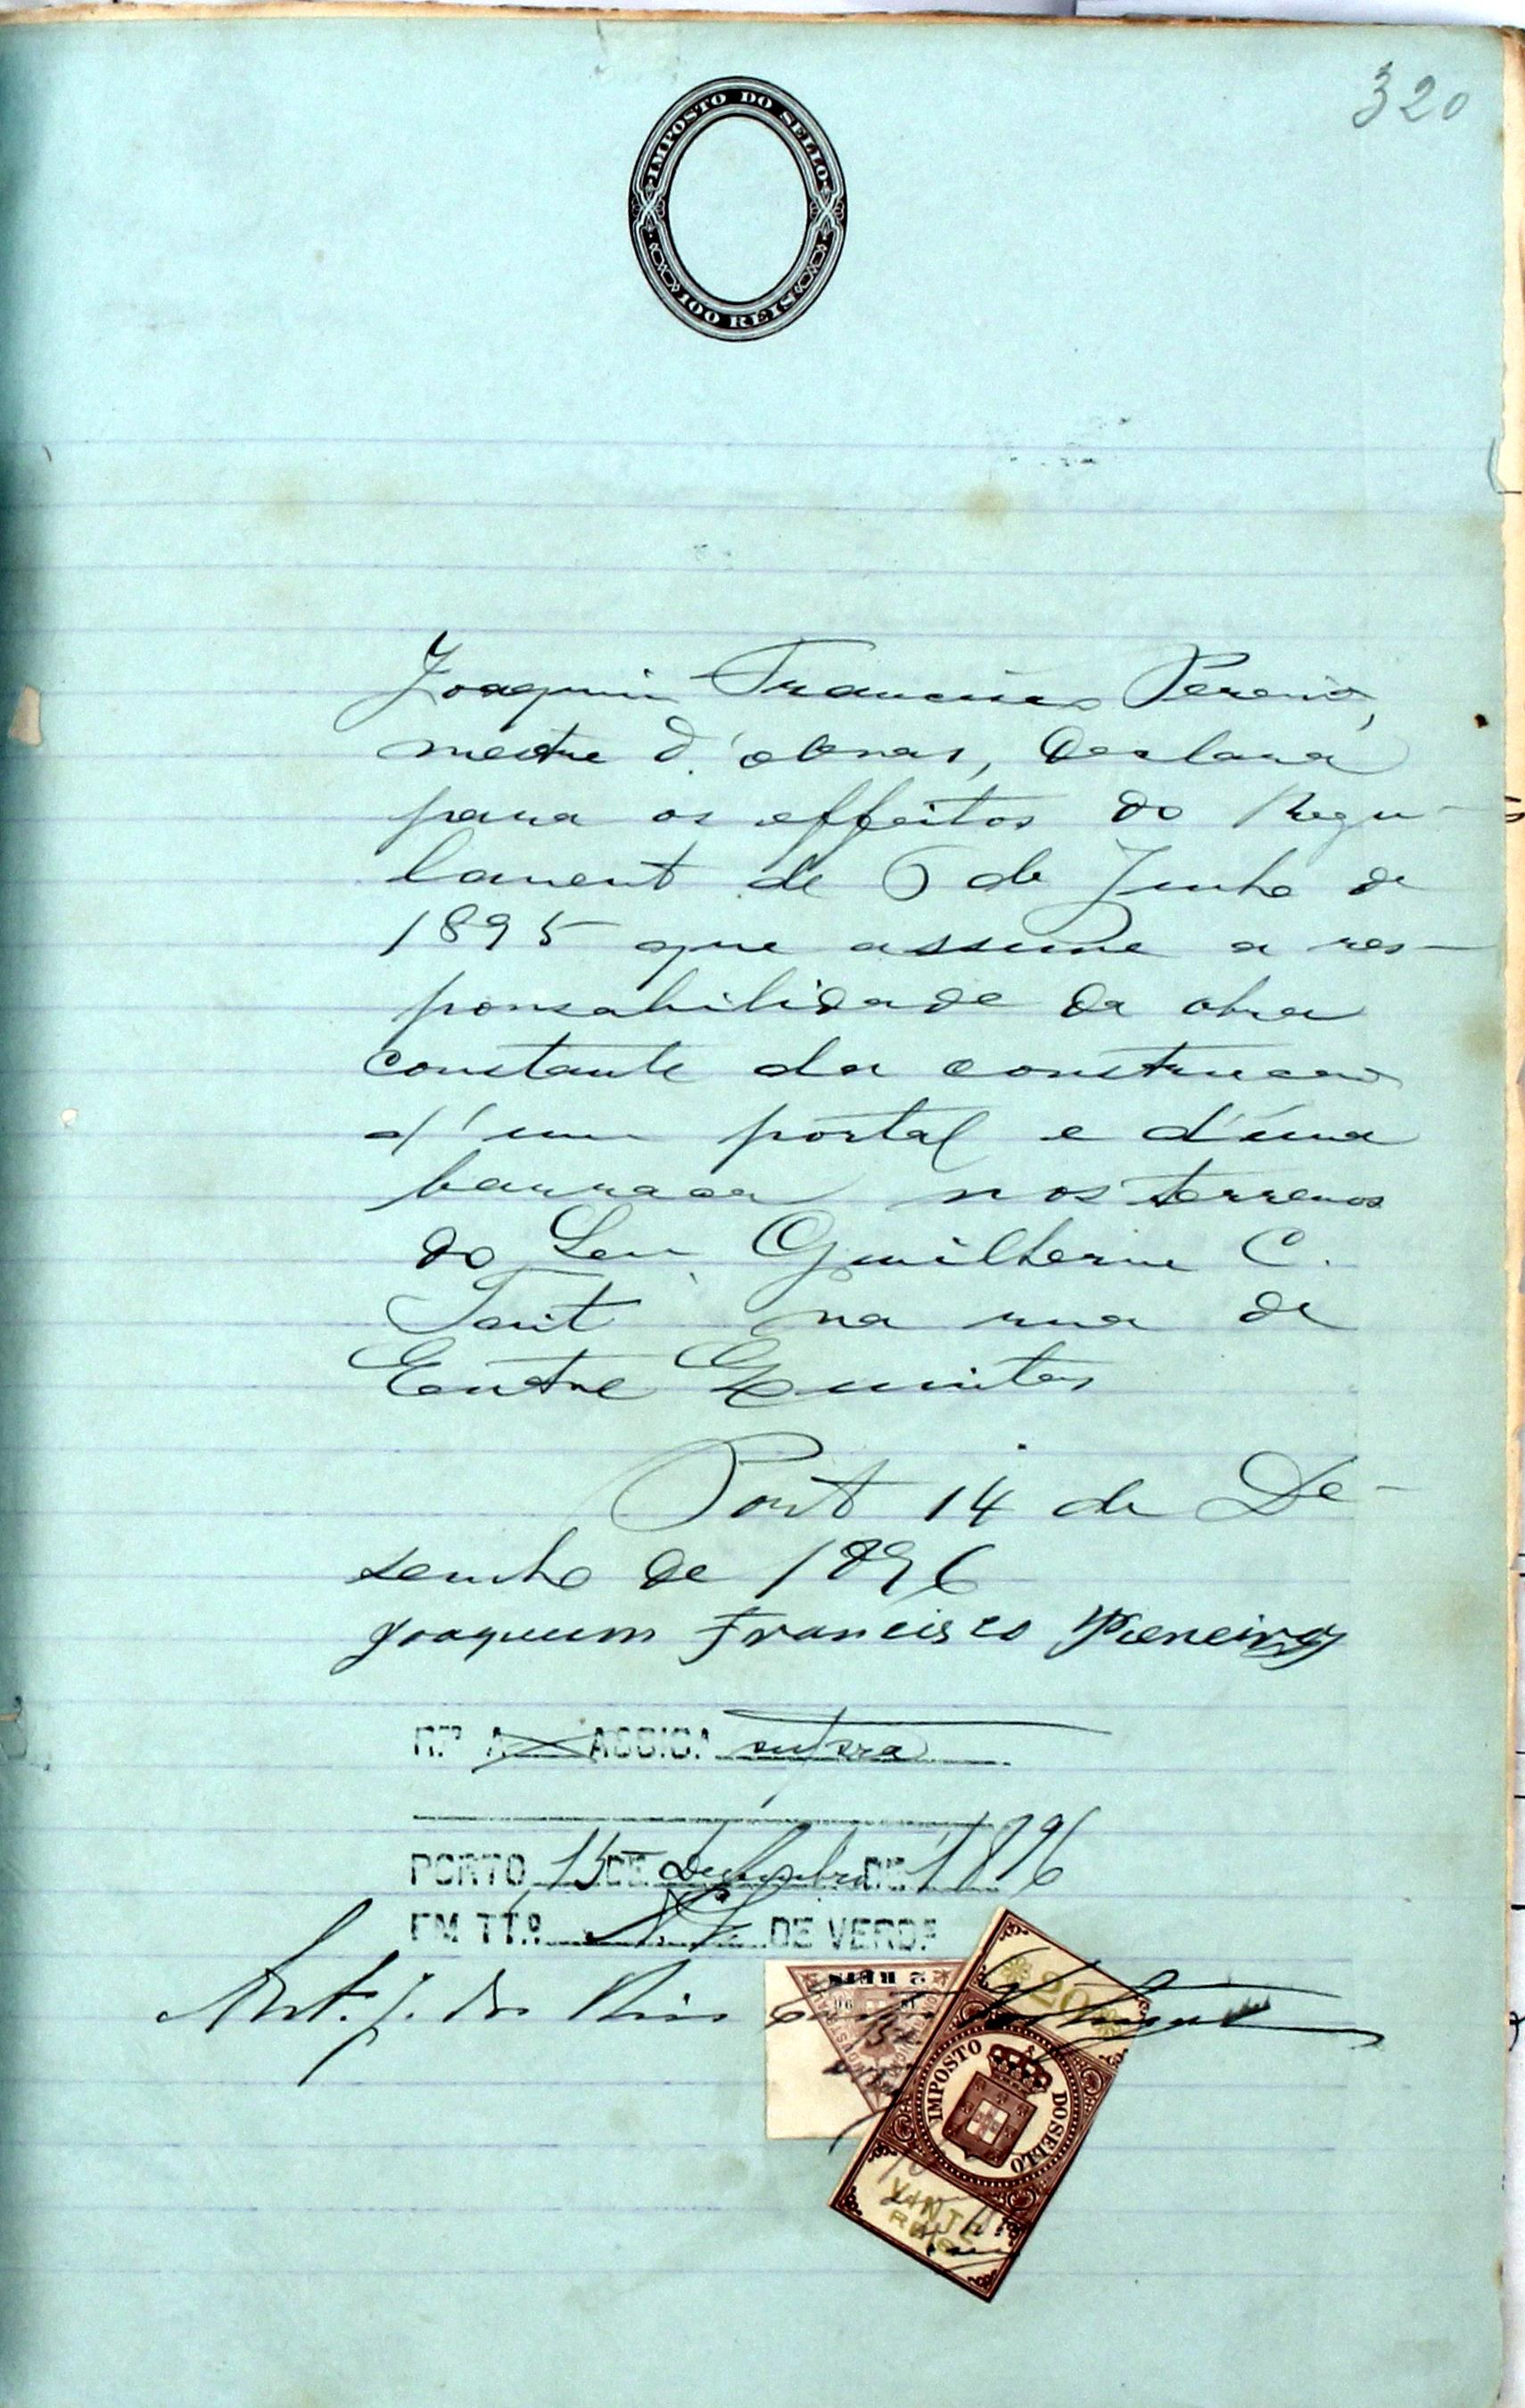 320
IMPOSTO DO SELLO
100 REIS
Joaquim Francisco Pereira,
mestre d'obras, declara
para os effeitos do Regu-
lament de 6 de Junho de
1895 que assume a res-
ponsabilidade da obra
constante da construcao
d'um portal e d'uma
barraca nos terrenos
do Snr Guilherme C.
Tait na rua de
Entre Quintas
Port 14 de De-
sembro de 1896
Joaquim Francisco Pereira
R.º A ASSIG.A supra
PORTO 15 DE Dezembro DE 1896
EM TT.º DE VERD.E
Ant. J. dos Reis
2 REIS
96
20
IMPOSTO DO SELLO
VINTE
REIS